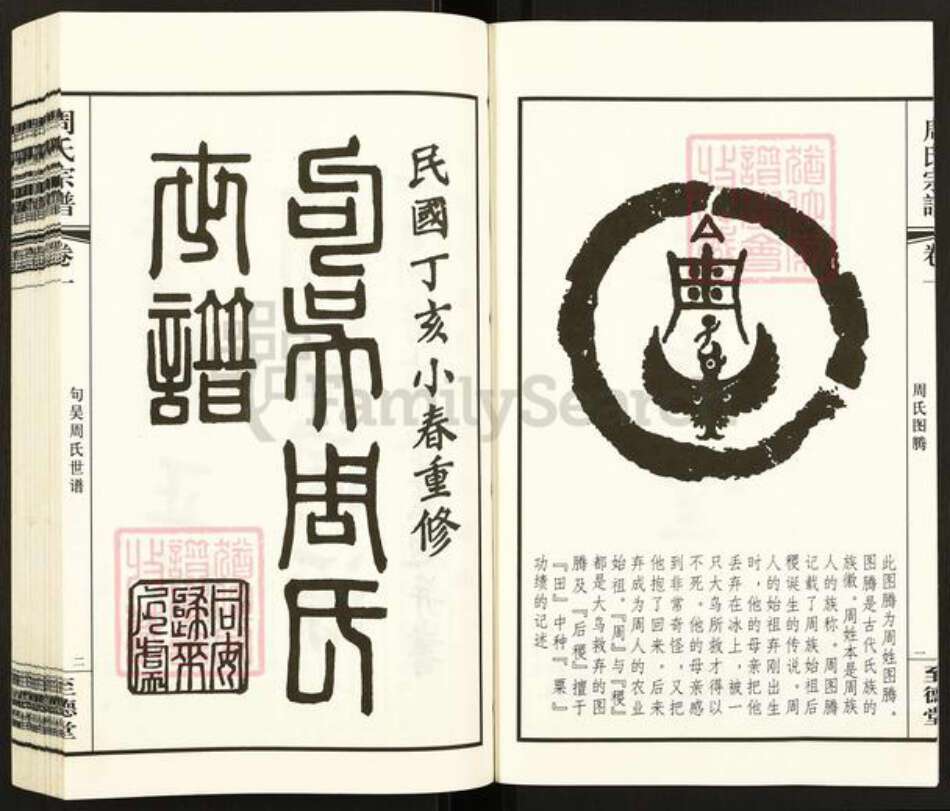 周氏宗譜
卷一
周氏图腾
一
至德堂
此图腾为周姓图腾。
图腾是古代氏族的
族徽。周姓本是周族
人的族称。周图腾
记载了周族始祖后
稷诞生的传说。周
人的始祖弃刚出生
时，他的母亲把他
丢弃在冰上，被一
只大鸟所救才得以
不死。他的母亲感
到非常奇怪，又把
他抱了回来，后来
弃成为周人的农业
始祖。『周』与『稷』
都是大鸟救弃的图
腾及『后稷』擅于
『田』中种『粟』
功绩的记述
民國丁亥小春重修
句吴周氏
世譜
周氏宗譜
卷一
句吴周氏世谱
二
至德堂
FamilySearch